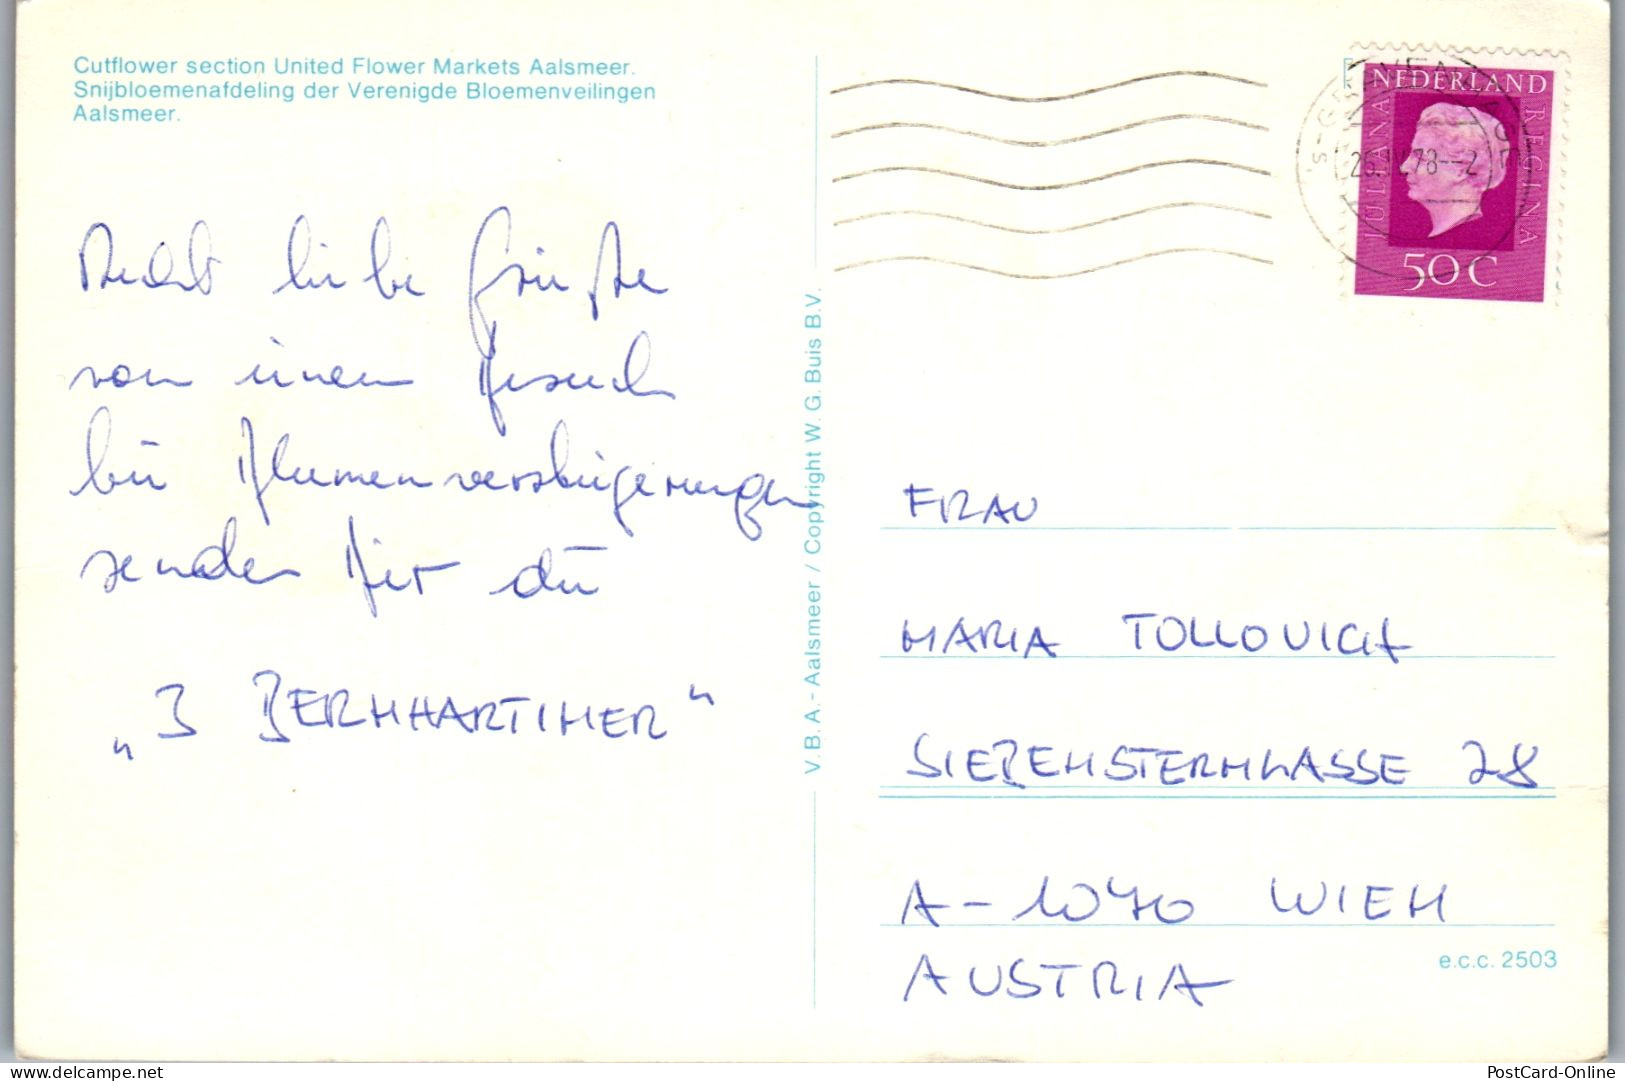 Cutflower section United Flower Markets Aalsmeer.
Snijbloemenafdeling der Verenigde Bloemenveilingen
Aalsmeer.
Recht liebe Grüße
von einem Besuch
bei Blumenversteigerungen
senden Dir die
„3 BERNHARTINER“
V.B.A.-Aalsmeer / Copyright W.G. Buis B.V.
NEDERLAND
JULIANA
REGINA
50C
's-GRAVENHAGE
26.IV.78--2
FRAU
MARIA TOLLOVICH
SIEBENSTERNGASSE 28
A-1070 WIEN
AUSTRIA
e.c.c. 2503
PostCard-Online
delcampe.net